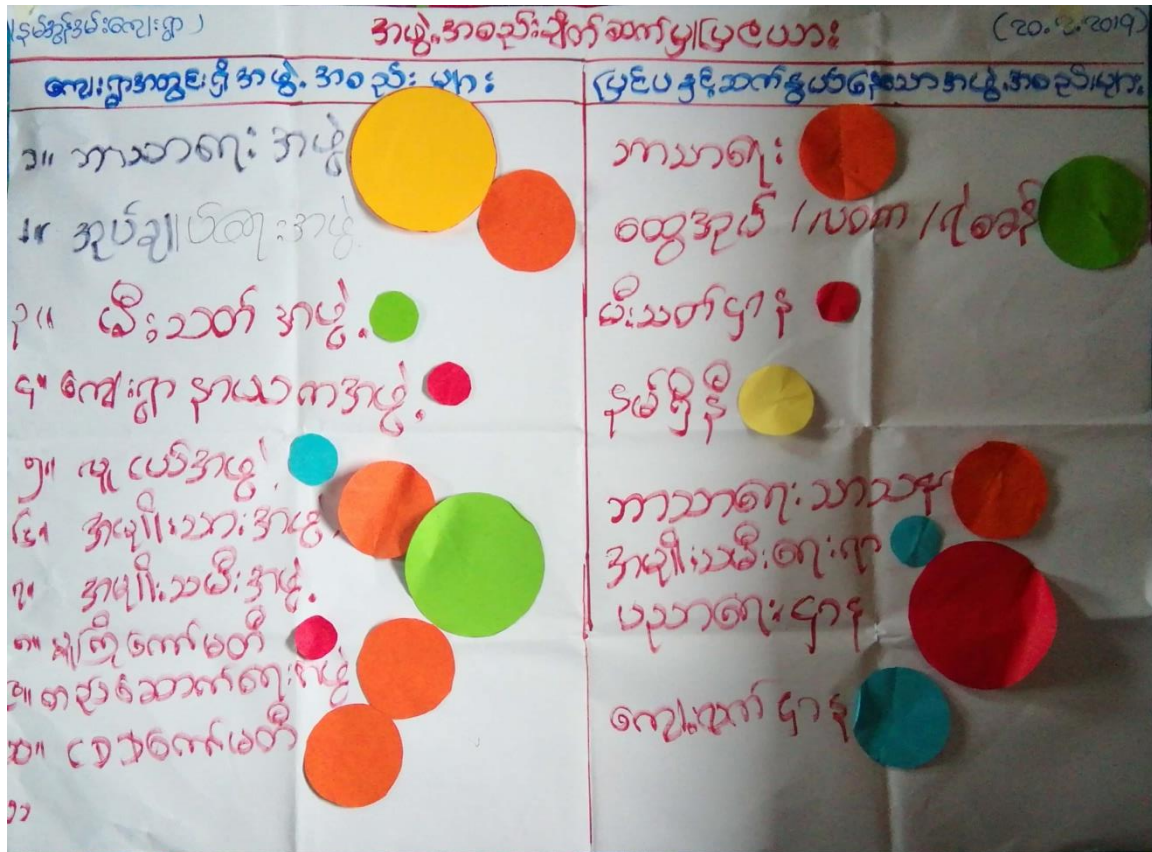 (နမ့်အွန်ဒမ်းကျေးရွာ)
အဖွဲ့အစည်းချိတ်ဆက်မှုပြဇယား
(20.2.2019)
ကျေးရွာအတွင်းရှိ အဖွဲ့အစည်းများ
၁။ ဘာသာရေး အဖွဲ့
၂။ အုပ်ချုပ်ရေးအဖွဲ့
၃။ မီးသတ် အဖွဲ့
၄။ ကျေးရွာ နာယကအဖွဲ့
၅။ လူငယ်အဖွဲ့
၆။ အမျိုးသားအဖွဲ့
၇။ အမျိုးသမီးအဖွဲ့
ကော်မတီ
တည်ဆောက်ရေးအဖွဲ့
၁၀။ CDDကော်မတီ
၁၁
ပြင်ပနှင့်ဆက်နွယ်နေသောအဖွဲ့အစည်းများ
ဘာသာရေး
ထွေအုပ် / လဝက / ရဲစခန်း
မီးသတ်ဌာန
နမ့်ရှိနီ
ဘာသာရေး သာသနာ
အမျိုးသမီးရေးရာ
ပညာရေးဌာန
ကျေးလက်ဌာန